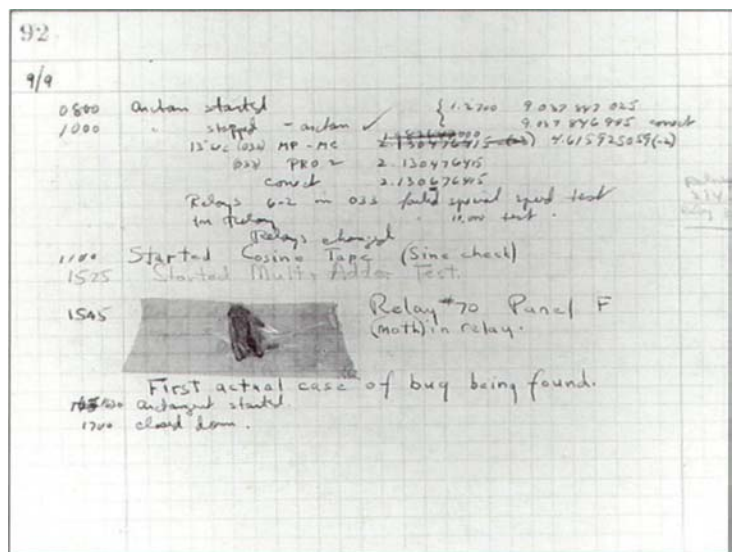 92
9/9
0800 Antan started
1000 " stopped - antan ✓
{ 1.2700 9.037 847 025
9.037 846 995 correct
13"uc (032) MP - MC 2.130476415 4.615925059(-2)
(033) PRO 2 2.130476415
correct 2.130676415
Relays 6-2 in 033 failed special speed test
in relay " 10.000 test.
Relays changed
1100 Started Cosine Tape (Sine check)
1525 Started Mult+ Adder Test.
1545 Relay #70 Panel F
(moth) in relay.
First actual case of bug being found.
1630 antangent started.
1700 closed down.